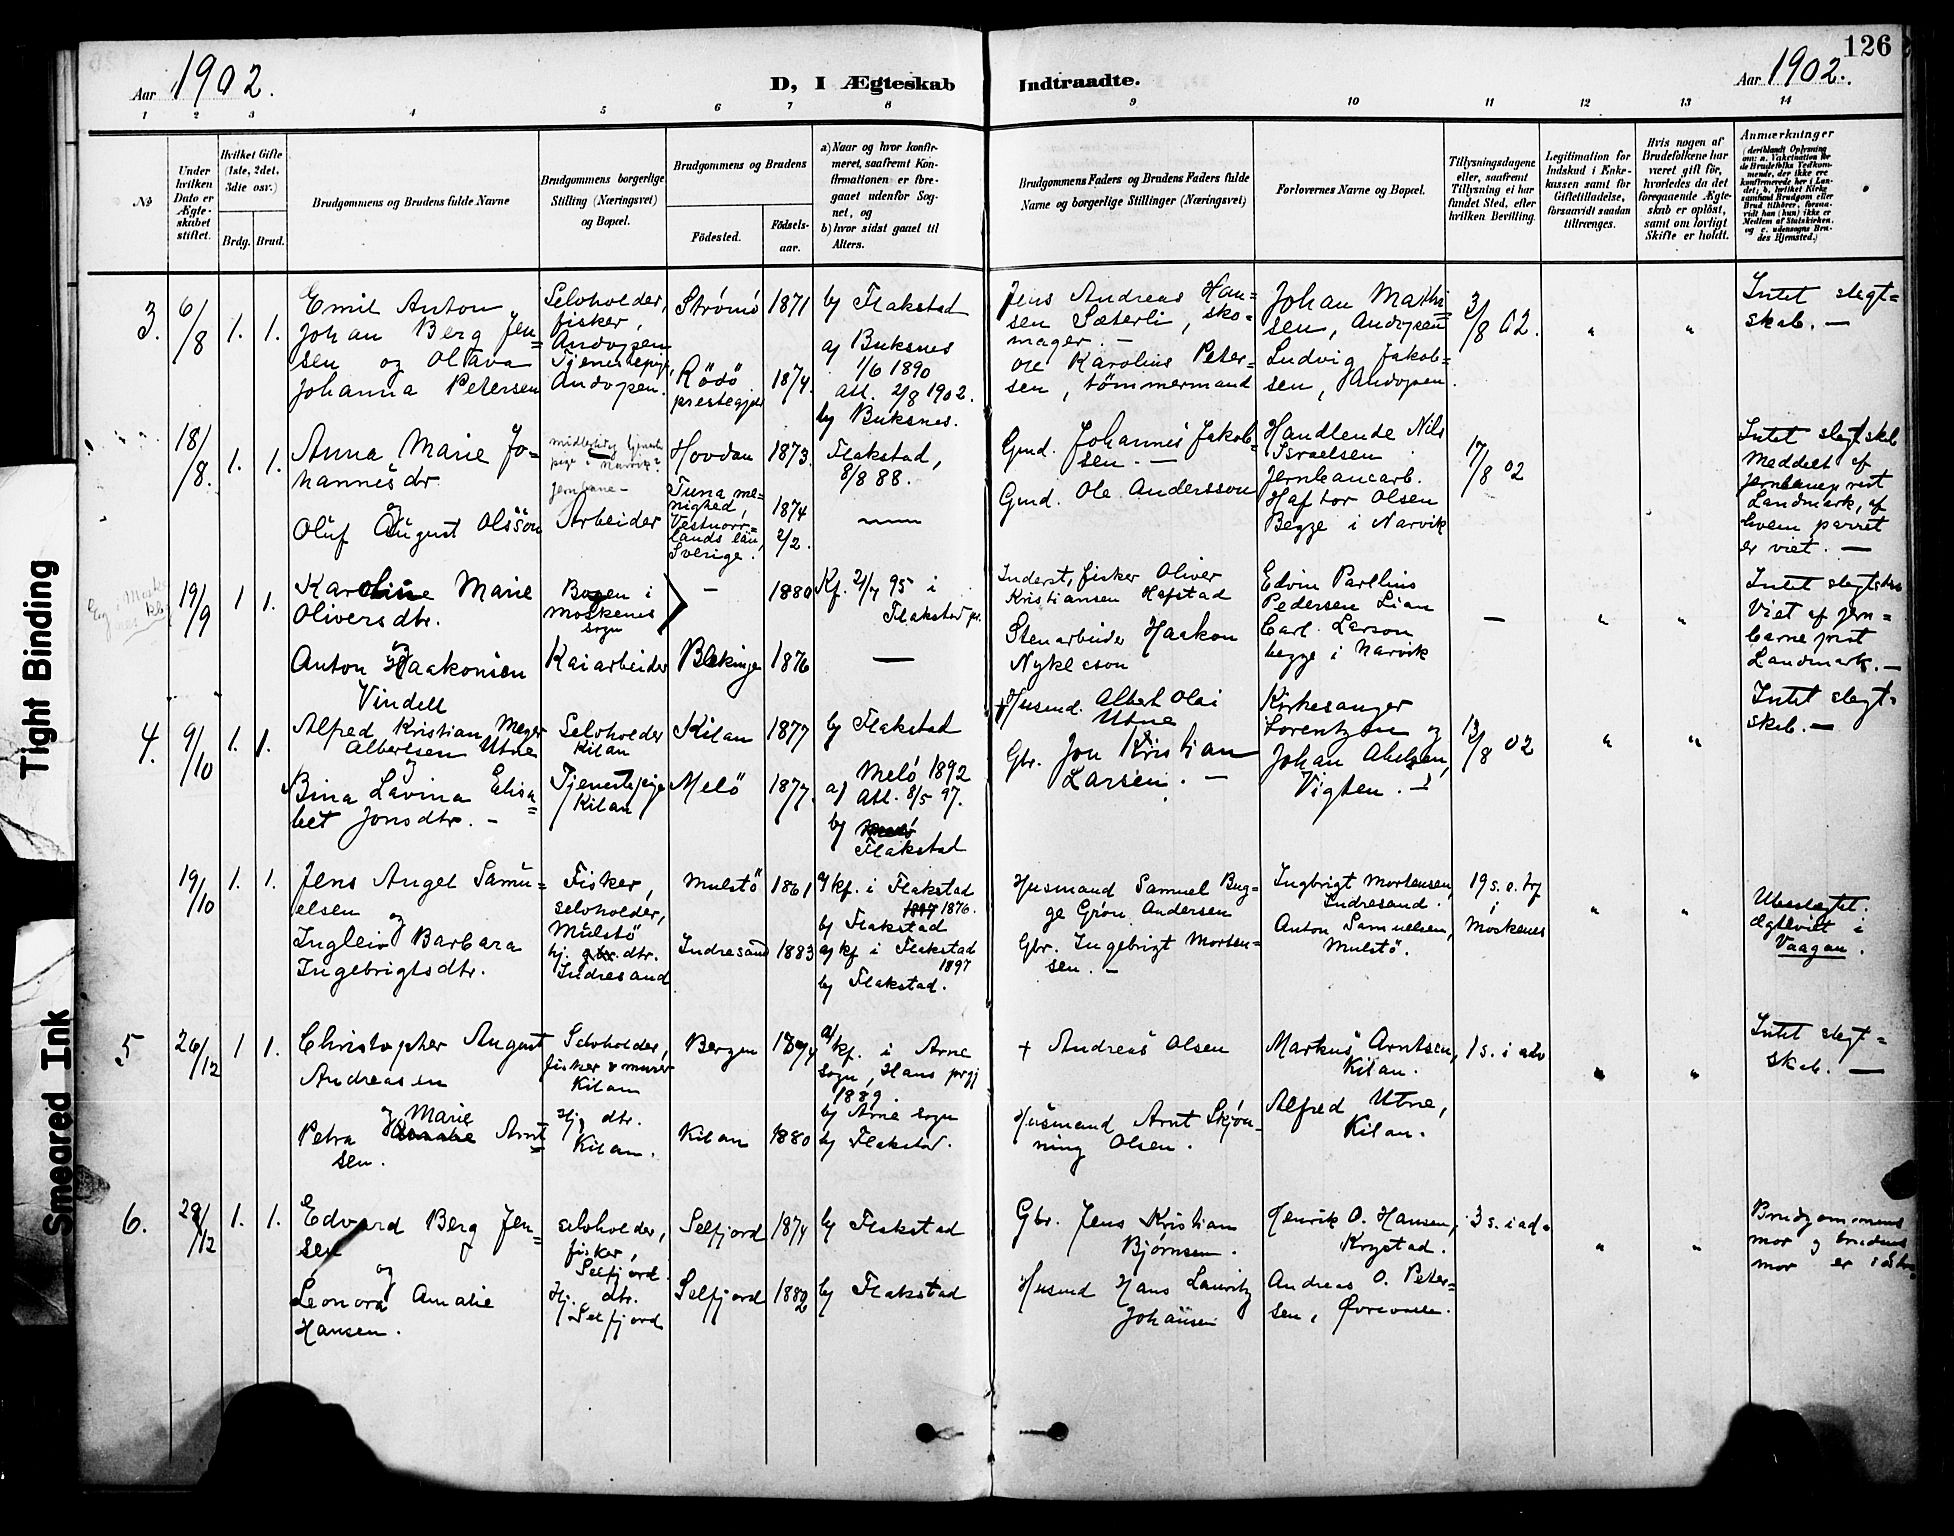 126
Aar 1902.
D, I Ægteskab Indtraadte.
Aar 1902.
1 2 3 4 5 6 7 8 9 10 11 12 13 14
№
Under
hvilken
Dato er
Ægte-
skabet
stiftet.
Hvilket Gifte
(1ste, 2det,
3die osv.)
Brdg. Brud.
Brudgommens og Brudens fulde Navne
Brudgommens borgerlige
Stilling (Næringsvei)
og Bopæl.
Brudgommens og Brudens
Födested.
Födsels-
aar.
a) Naar og hvor konfir-
meret, saafremt Kon-
firmationen er fore-
gaaet udenfor Sog-
net, og
b) hvor sidst gaaet til
Alters.
Brudgommens Faders og Brudens Faders fulde
Navne og borgerlige Stillinger (Næringsvei)
Forlovernes Navne og Bopæl.
Tillysningsdagene
eller, saafremt
Tillysning ei har
fundet Sted, efter
hvilken Bevilling.
Legitimation for
Indskud i Enke-
kassen samt for
Giftetilladelse,
forsaavidt saadan
tiltrænges.
Hvis nogen af
Brudefolkene har
været gift før,
hvorledes da det
foregaaende Ægte-
skab er opløst,
samt om lovligt
Skifte er holdt.
Anmærkninger
(deriblandt Oplysning
om: a. Vakcination for
de Brudefolks Vedkom-
mende, der ikke ere
konfirmerede her i Lan-
det; b. hvilket Kirke
samfund Brudgom eller
Brud tilhører, forsaa-
vidt han (hun) ikke er
Medlem af Statskirken,
og c. udensogns Bru-
des Hjemsted.)
3.
6/8
1. 1.
Emil Anton
Johan Berg Jen=
sen og Oltava
Johanna Petersen
Selvholder,
fisker,
Andopen
Tjenestepige,
Andopen.
Strömö 1871
Rödö
prestegjeld
1874.
b) Flakstad
a) Buksnes
1/6 1890
att. 2/8 1902.
b) Buksnes.
Jens Andreas Han=
sen Sæterli, sko=
mager. -
Ole Karolius Peter-
sen, tömmermand
Johan Mathi
sen, Andopen
Ludvig Jakob=
sen, Andopen.
3/8 02.
" "
Intet slegt=
skab. -
18/8.
1. 1.
Anna Marie Jo-
hannesdr.
og
Oluf August Olsson
midlertidig tjeneste
pige i Narvik
Jernbane-
Arbeider
Hovdan 1873.
Tuna me-
nighed,
Vestnorr-
lands län,
Sverige.
1874
2/2.
Flakstad,
8/8 88.
Gmd. Johannes Jakob-
sen. -
Gmd. Ole Andersson
Handlende Nils
Israelsen
Jernbanearb.
Haftor Olsen
Begge i Narvik
17/8 02
Intet slegtskab
Meddelt af
jernbaneprest
Landmark, af
hvem parret
er viet. -
19/9
1 1.
Karoline Marie
Oliversdtr.
og
Anton Haakonsen
Vindell
Bogen i
Moskenes
sogn
Kaiarbeider
- 1880
Blekinge 1876
Kf. 21/7 95 i
Flakstad pr.
-
Inderst, fisker Oliver
Kristiansen Hofstad
Stenarbeider Haakon
Nykleson
Edvin Parelius
Pedersen Lian
Carl Larson
begge i Narvik
-
" "
Intet slegtskab
Viet af jern=
baneprst
Landmark. -
4.
9/10
1. 1.
Alfred Kristian Meyer
Albertsen Utne
og
Bina Lavina Elisa=
bet Jonsdtr. -
Selvholder
Kilan
Tjenestepige
Kilan
Kilan 1877
Melö 1877.
b) Flakstad
a) Melö 1892
Att. 8/5 97.
b) Flakstad
+ Husmd. Albert Olai
Utne
Gbr. Jon Kristian
Larsen. -
Kirkesanger
Lorentzen og
Johan Abelsen,
Vigten. -
12/8 02
" "
Intet slegt-
skab. -
19/10
1. 1.
Jens Angel Samu=
elsen
og
Ingleiv Barbara
Ingebrigtsdtr.
Fisker,
selvholder,
Mulstö
hj. gbr. dtr.
Indresand
Mulstö 1861
Indresand 1883
a) kf. i Flakstad
1876.
b) Flakstad
a) kf i Flakstad
1897
b) Flakstad.
Husmand Samuel Bug-
ge Grön Andersen
Gbr. Ingebrigt Morten-
sen. -
Ingbrigt Mortensen,
Indresand.
Anton Samuelsen,
Mulstö.
19 s. e. trf
i
Moskenes
" "
Ubeslegtet.
Ægteviet i
Vaagan.
5
26/12
1 1.
Christopher August
Andreasen
og Marie
Petra Arnt=
sen.
Selvholder,
fisker & murer
Kilan
Hj. dtr.
Kilan.
Bergen 1874
Kilan 1880
a) kf. i Arne
sogn, Haus prgj
1889.
b) Arne sogn
b) Flakstad.
+ Andreas Olsen
Husmand Arnt Skjön-
ning Olsen.
Markus Arntsen,
Kilan.
Alfred Utne,
Kilan.
1 s. i adv
" "
Intet slegt=
skab. -
6.
1. 1.
Edvard Berg Jen=
sen
og
Leonora Amalie
Hansen.
selvholder,
fisker,
Selfjord.
Hj. dtr.
Selfjord
Selfjord 1874
Selfjord 1882
b) Flakstad
b) Flakstad
Gbr. Jens Kristian
Bjørnsen.
Husmd Hans Lauritz
Johansen
Henrik O. Hansen,
Krystad.
Andreas O. Peter=
sen,
3 s. i ad.
" "
Brudgommens
mor og brudens
mor er
Tight Binding
Smeared Ink